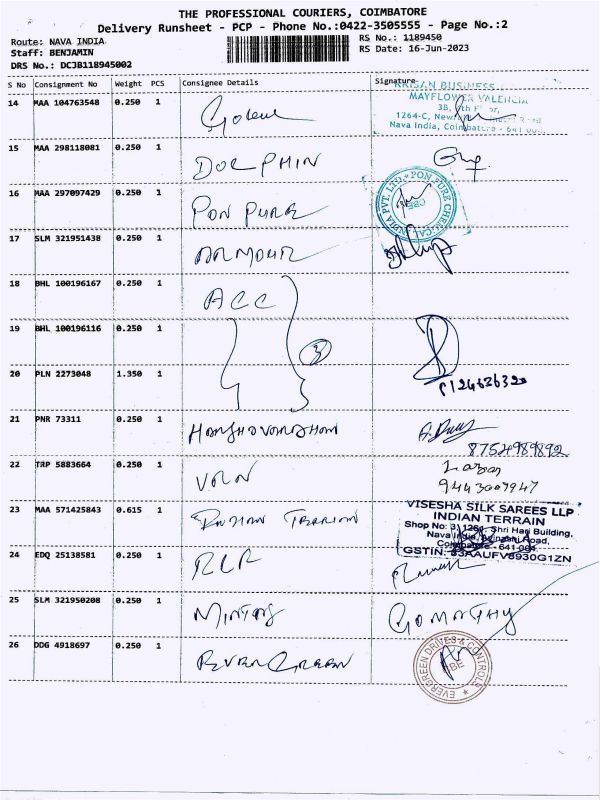 THE PROFESSIONAL COURIERS, COIMBATORE
Delivery Runsheet - PCP - Phone No.:0422-3505555 - Page No.:2
Route: NAVA INDIA
Staff: BENJAMIN
DRS No.: DCJB118945002
RS No.: 1189450
RS Date: 16-Jun-2023
S No Consignment No Weight PCS Consignee Details Signature
14 MAA 104763548 0.250 1
KRISAN BUSINESS
MAYFLOWER VALENCIA
1264-C,
Nava India, Coimbatore - 641
15 MAA 298118081 0.250 1 DOLPHIN
16 MAA 297097429 0.250 1 PON PURE
INDIA PVT. LTD. PON PURE CHEMICAL
CBE
17 SLM 321951438 0.250 1 ARMOUR
18 BHL 100196167 0.250 1 ACC
19 BHL 100196116 0.250 1 3
20 PLN 2273048 1.350 1
21 PNR 73311 0.250 1 HARSHAVARDHAN
8754989892
22 TRP 5883664 0.250 1
9443007947
23 MAA 571425843 0.615 1 INDIAN TERRAIN
VISESHA SILK SAREES LLP
INDIAN TERRAIN
Shop No: 3, 1264, Shri Hari Building,
Nava India, Avinashi Road,
Coimbatore - 641 004
GSTIN: 33AAUFV8930G1ZN
24 EDQ 25138581 0.250 1 RLR
25 SLM 321950208 0.250 1 GOMATHY
26 DDG 4918697 0.250 1 EVERGREEN
EVERGREEN DRIVES & CONTROLS
CBE